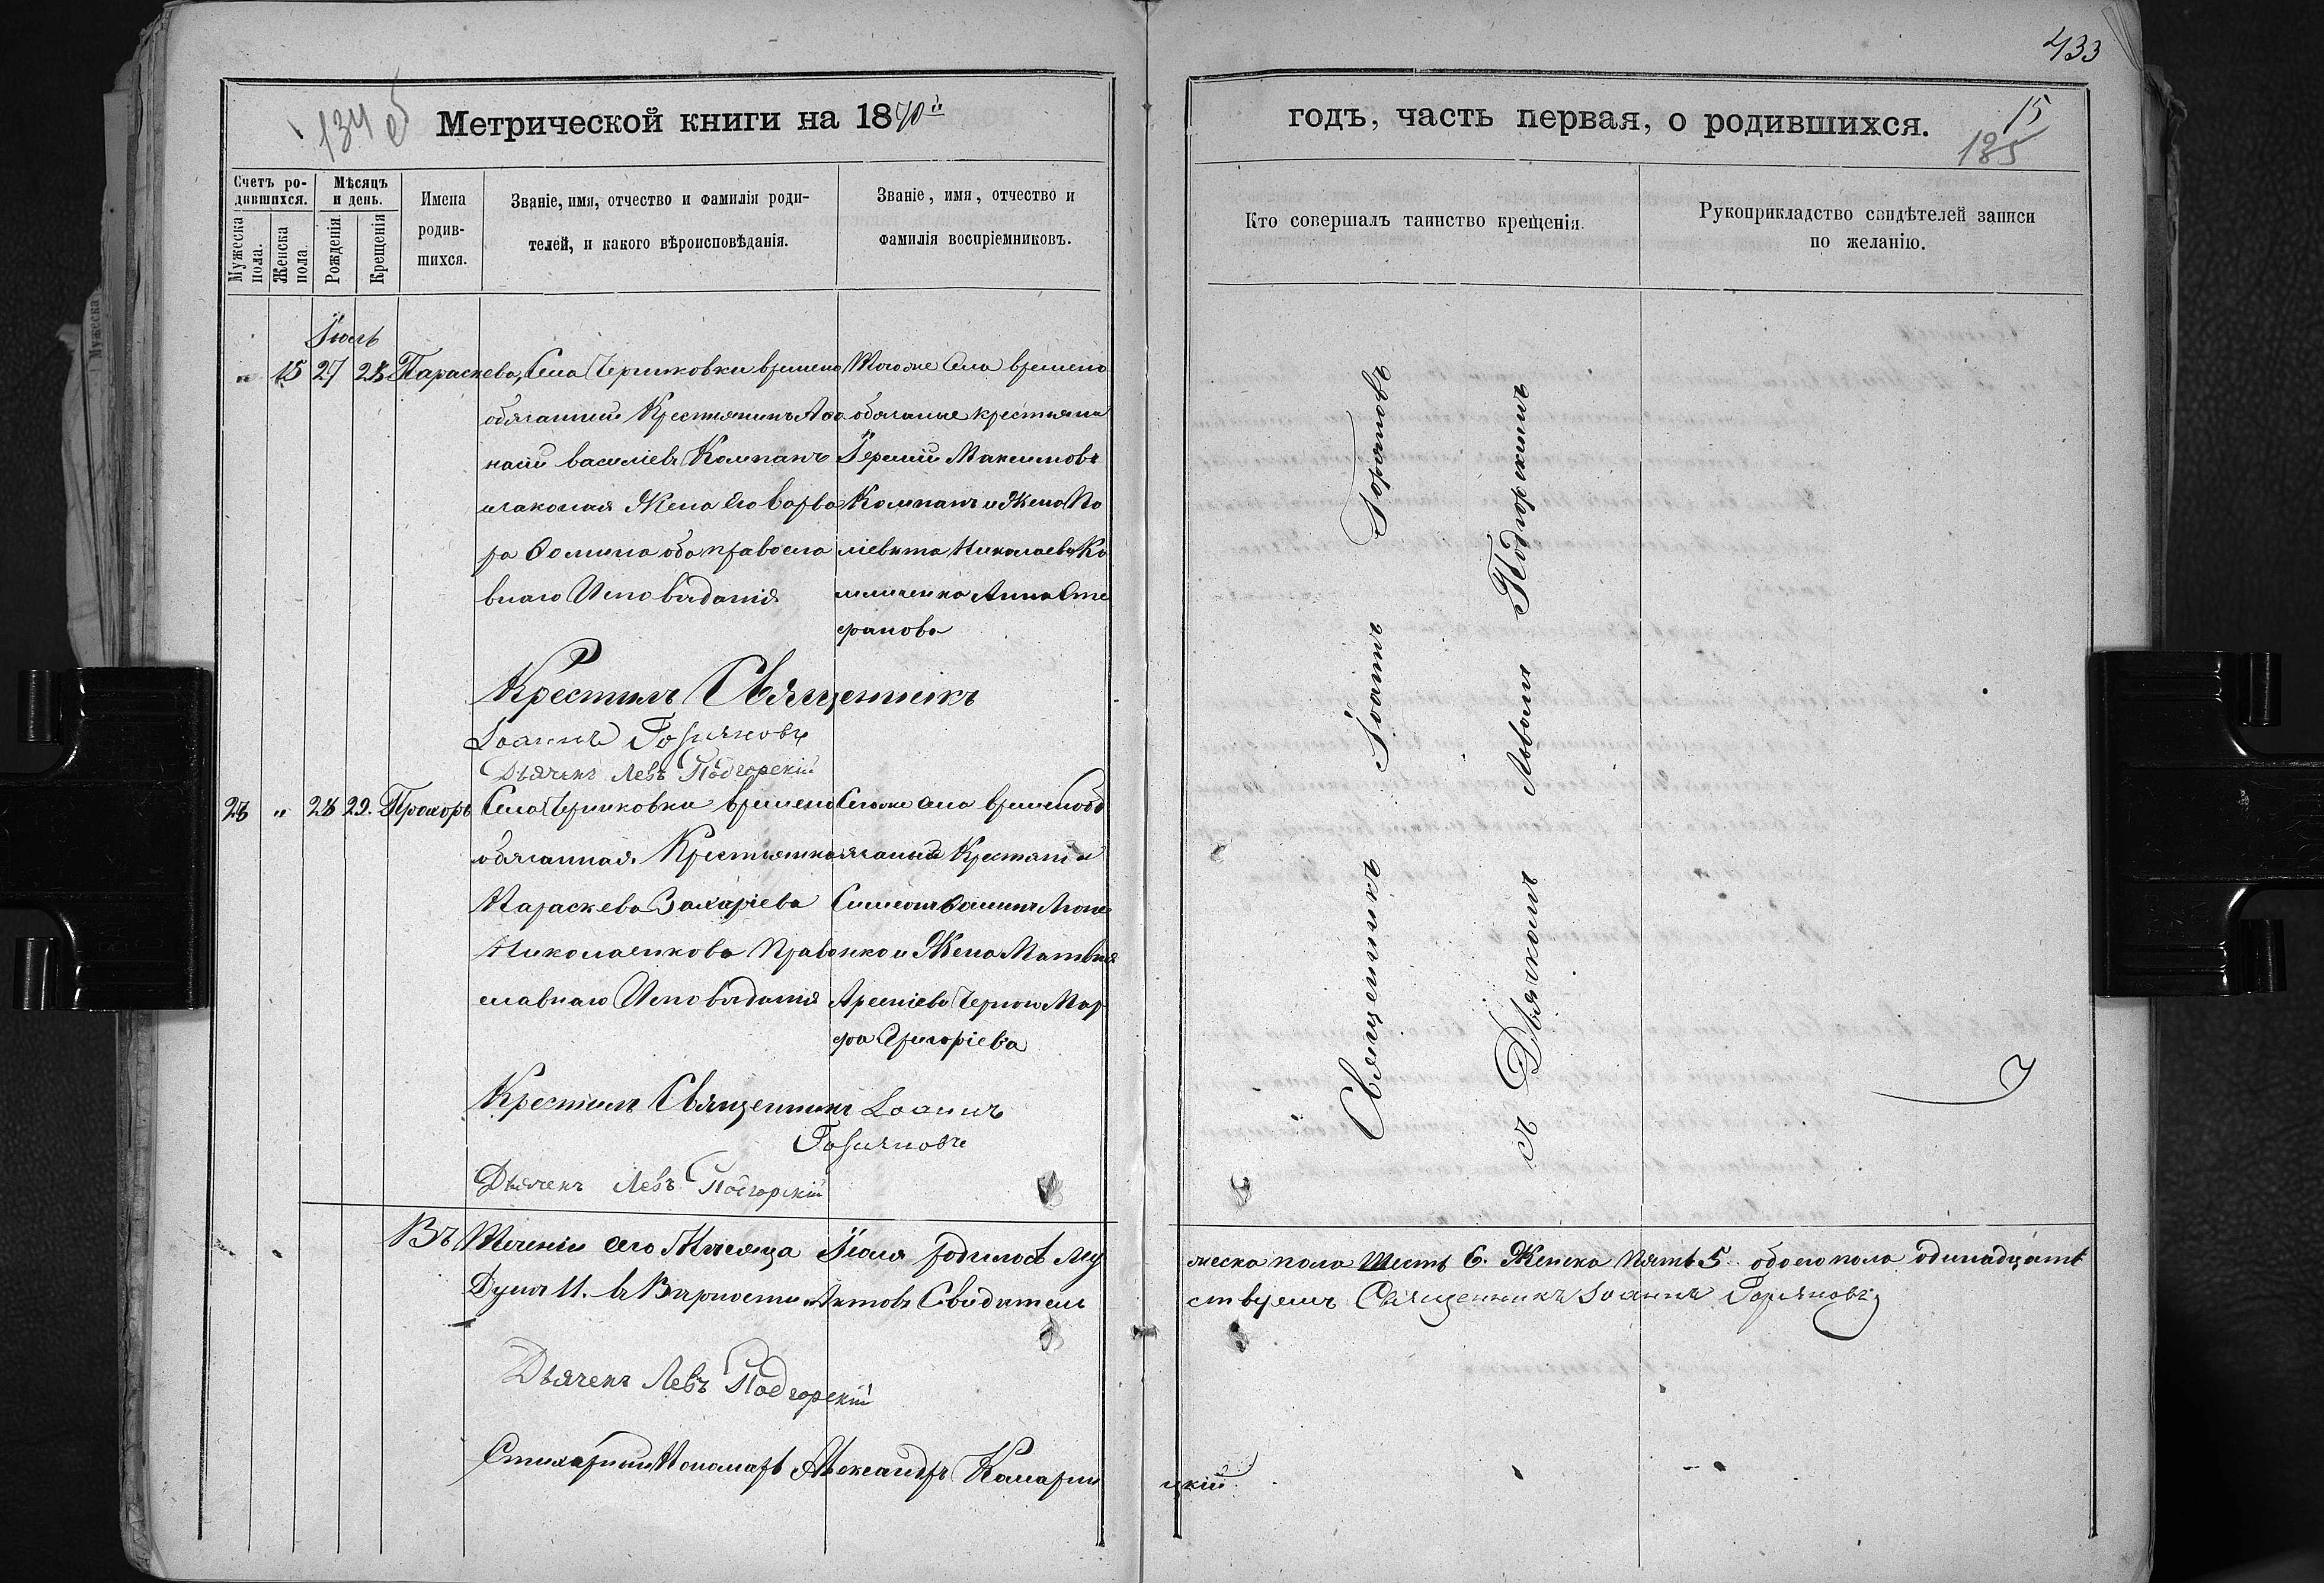 433
134 об
Метрической книги на 1870й
годъ, часть первая, о родившихся.
15
135
Счетъ ро-
дившихся.
Мужеска
пола.
Женска
пола.
Мѣсяцъ
и день.
Рожденія
Крещенія
Имена
родив-
шихся.
Званіе, имя, отчество и фамилія роди-
телей, и какого вѣроисповѣданія.
Званіе, имя, отчество и
фамилія воспріемниковъ.
Кто совершалъ таинство крещенія.
Рукоприкладство свидѣтелей записи
по желанію.
Іюль
„ 15 27 28 Параскева,
Села Термковки времено
обязанный Крестянинъ Аѳа
насій василіевъ Компанъ
изаконая Жена Его Варва
ра Ѳомина оба правосла
внаго Исповѣданія
Тогоже Села времено
обязаные крестьяна
Іеремій Максимовъ
Компанъ и Жена По
ліевкта Николаева Ко
Анна Сте
фанова
Крестилъ Священникъ
Іоаннъ Горяновъ
Дьячекъ Левъ Подгорскій
28 „ 28 29. Прохоръ
Села Термковки времено
обязанная Крестьянка
Параскева Захаріева
Николаенкова Право
славнаго Исповѣданія
Сегоже села временобо
язаный Крестянинъ
Симеонъ Ѳоминъ
нко и Жена Матвѣя
Арсеніева Мар
фа Григоріева
Крестилъ Священникъ Іоаннъ
Горяновъ
Дьячекъ Левъ Подгорскій
Священникъ Іоаннъ Горяновъ
съ Дьячкомъ Львомъ Подгорскимъ
Въ Теченіи сего Мѣсяца Іюля родилось Му
жеска пола Шесть 6. Женска Пять 5 обоего пола одинадцать
Душъ 11. въ Вѣрности Актовъ Свидѣтель
ствуемъ Священникъ Іоаннъ Горяновъ
Дьячекъ Левъ Подгорскій
Стихарный Пономарь Александръ Камарни
цкій